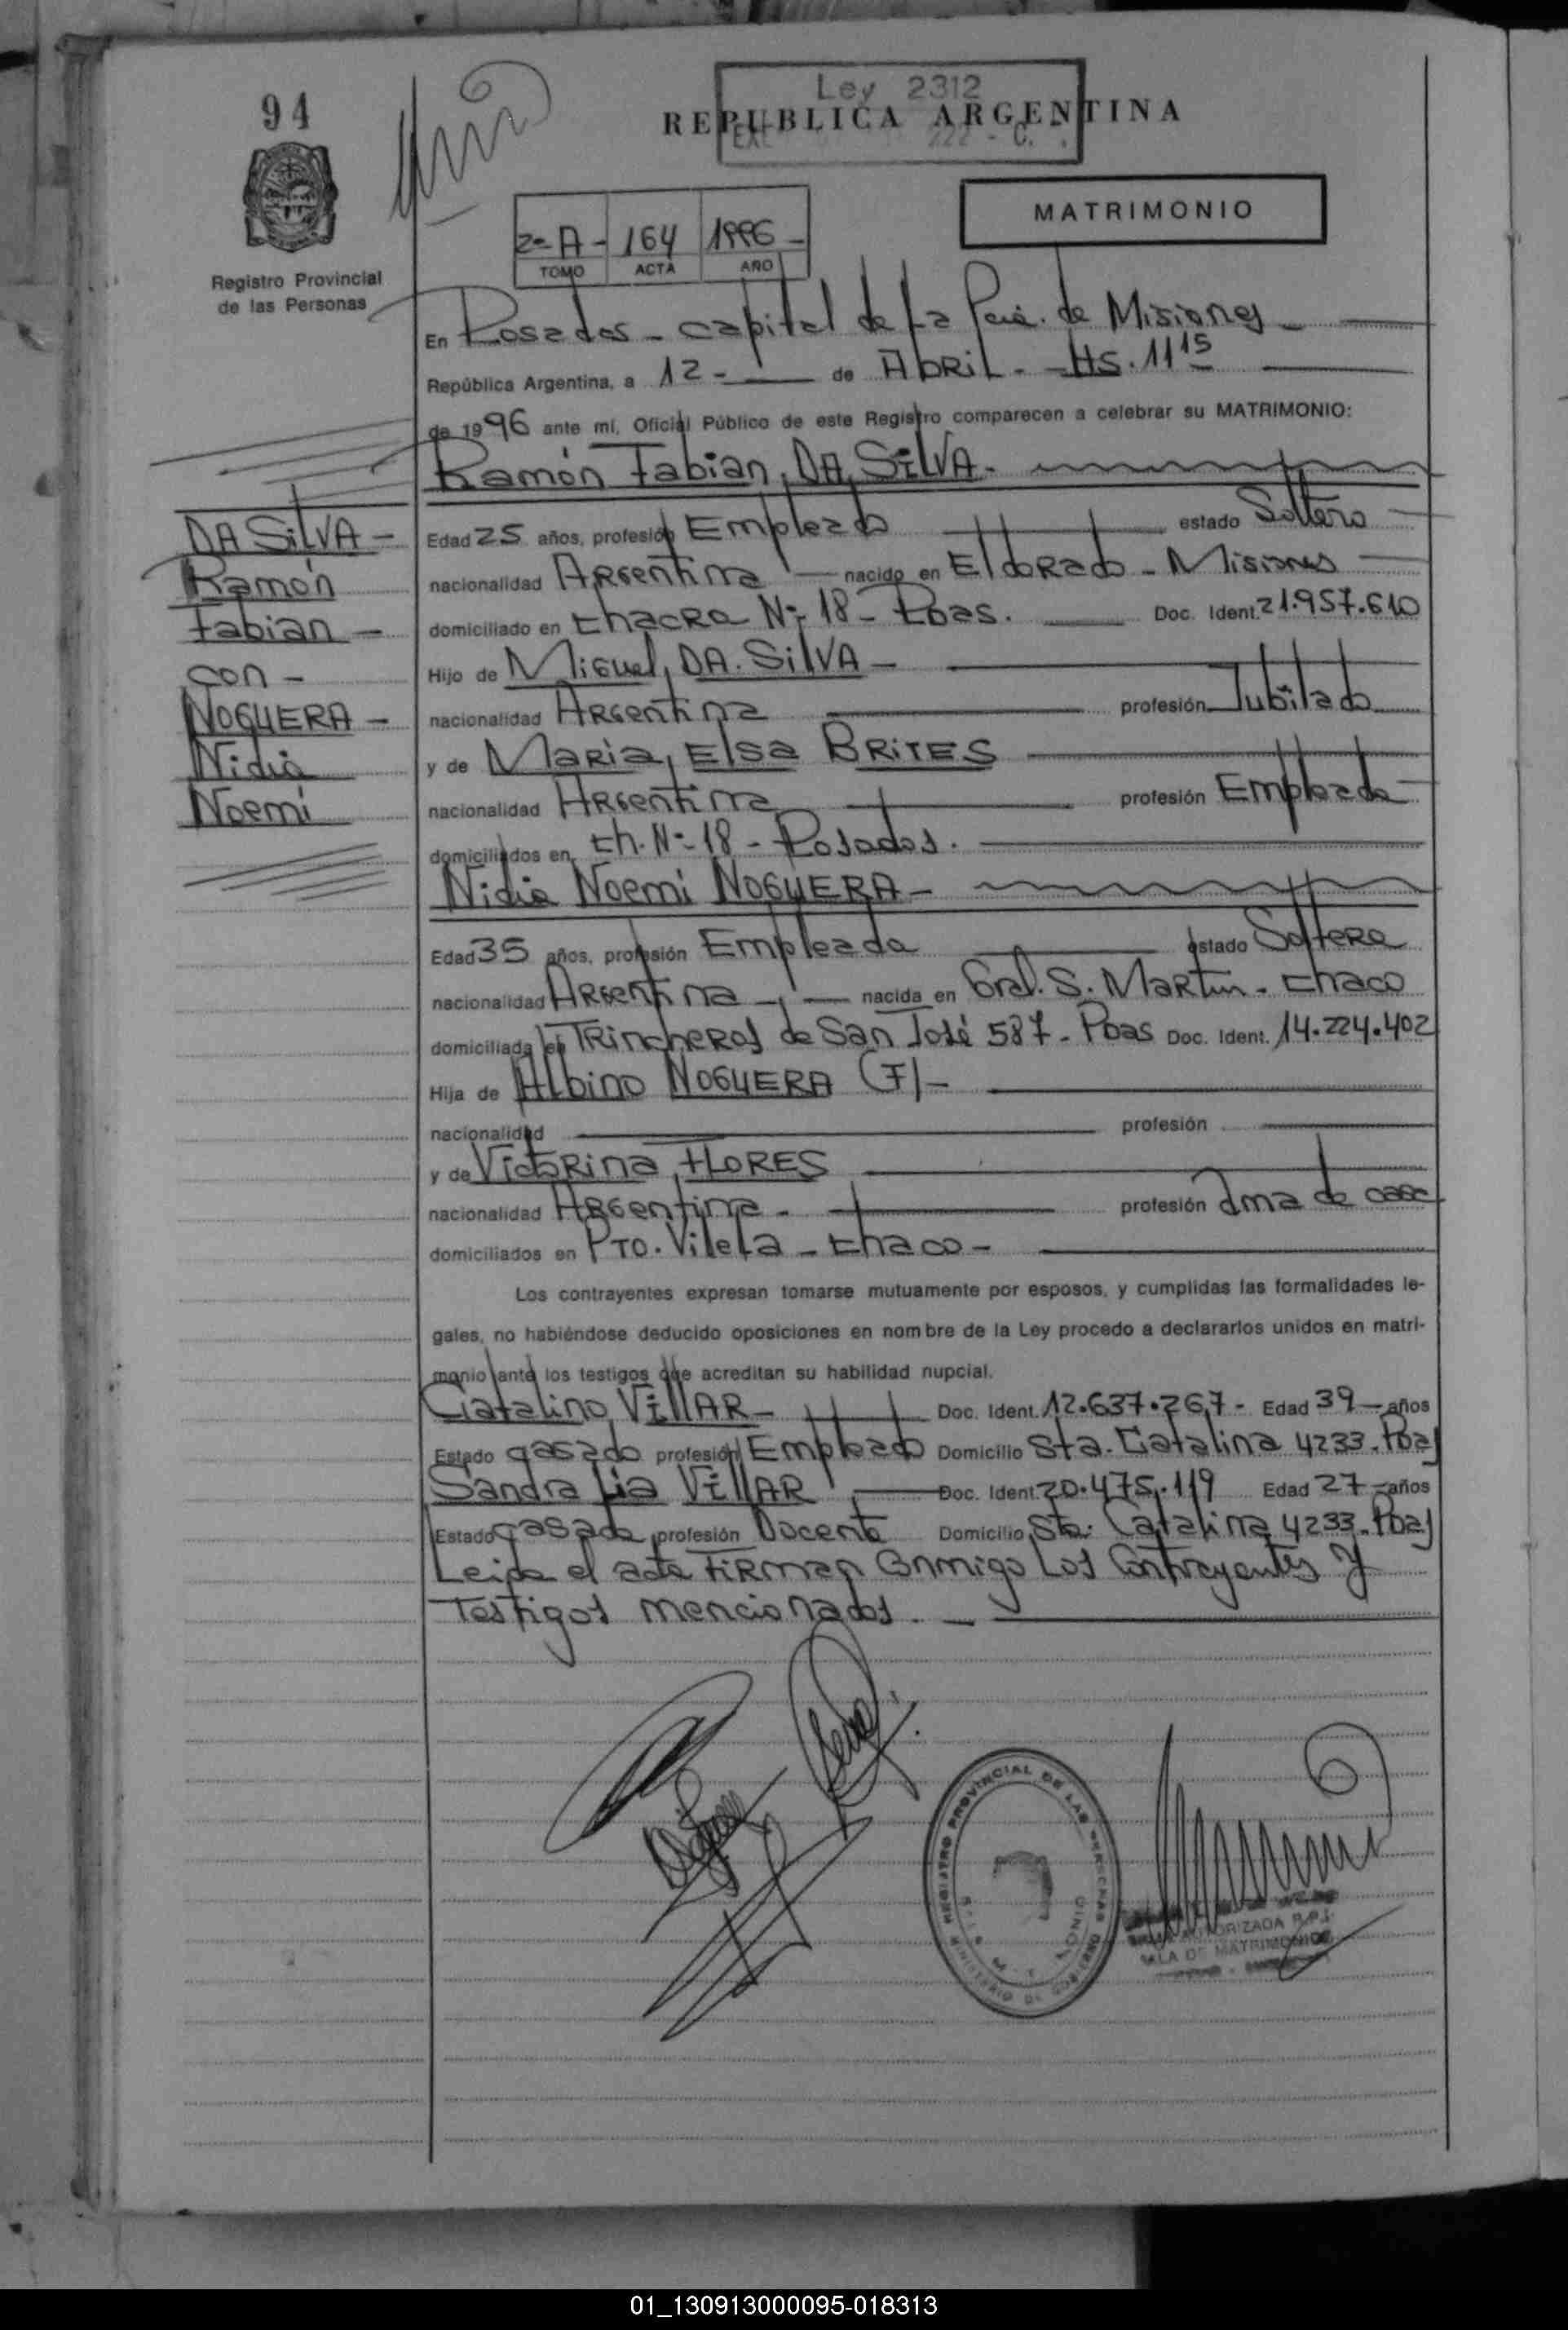 94
Ley 2312
REPUBLICA ARGENTINA
MATRIMONIO
2º A - 164 1996 -
TOMO ACTA AÑO
Registro Provincial
de las Personas
En Posadas - capital de La Pcia. de Misiones -
República Argentina, a 12 - de Abril - Hs. 11 15
de 1996 ante mí, Oficial Público de este Registro comparecen a celebrar su MATRIMONIO:
Ramón Fabian, DA SILVA -
DA SILVA -
Ramón
Fabian -
con -
NOGUERA -
Nidia
Noemi
Edad 25 años, profesión Empleado estado Soltero
nacionalidad Argentina - nacido en Eldorado - Misiones
domiciliado en Chacra Nº 18 - Pdas. Doc. Ident. 21.957.610
Hijo de Miguel, DA. SILVA -
nacionalidad Argentina profesión Jubilado
y de Maria, Elsa BRITES
nacionalidad Argentina profesión Empleada
domiciliados en, Ch. Nº 18 - Posadas.
Nidia Noemi NOGUERA -
Edad 35 años, profesión Empleada estado Soltera
nacionalidad Argentina - nacida en Gral. S. Martin - Chaco
domiciliada en Trincheras de San José 587 - Pdas Doc. Ident. 14.224.402
Hija de Albino NOGUERA (F) -
nacionalidad profesión
y de Victorina, FLORES
nacionalidad Argentina - profesión Ama de casa
domiciliados en Pto. Vilela - Chaco -
Los contrayentes expresan tomarse mutuamente por esposos, y cumplidas las formalidades le-
gales, no habiéndose deducido oposiciones en nombre de la Ley procedo a declararlos unidos en matri-
monio ante los testigos que acreditan su habilidad nupcial.
Catalino VILLAR - Doc. Ident. 12.637.267 - Edad 39 años
Estado casado profesión Empleado Domicilio Sta. Catalina 4233 - Pdas
Sandra Lia VILLAR Doc. Ident. 20.475.119 Edad 27 años
Estado casada profesión Docente Domicilio Sta. Catalina 4233 - Pdas
Leida el acta Firman Conmigo Los Contrayentes y
Testigos mencionados. -
REGISTRO PROVINCIAL DE LAS PERSONAS
MINISTERIO DE GOBIERNO
AUTORIZADA R.P.
SALA DE MATRIMONIOS
01_130913000095-018313